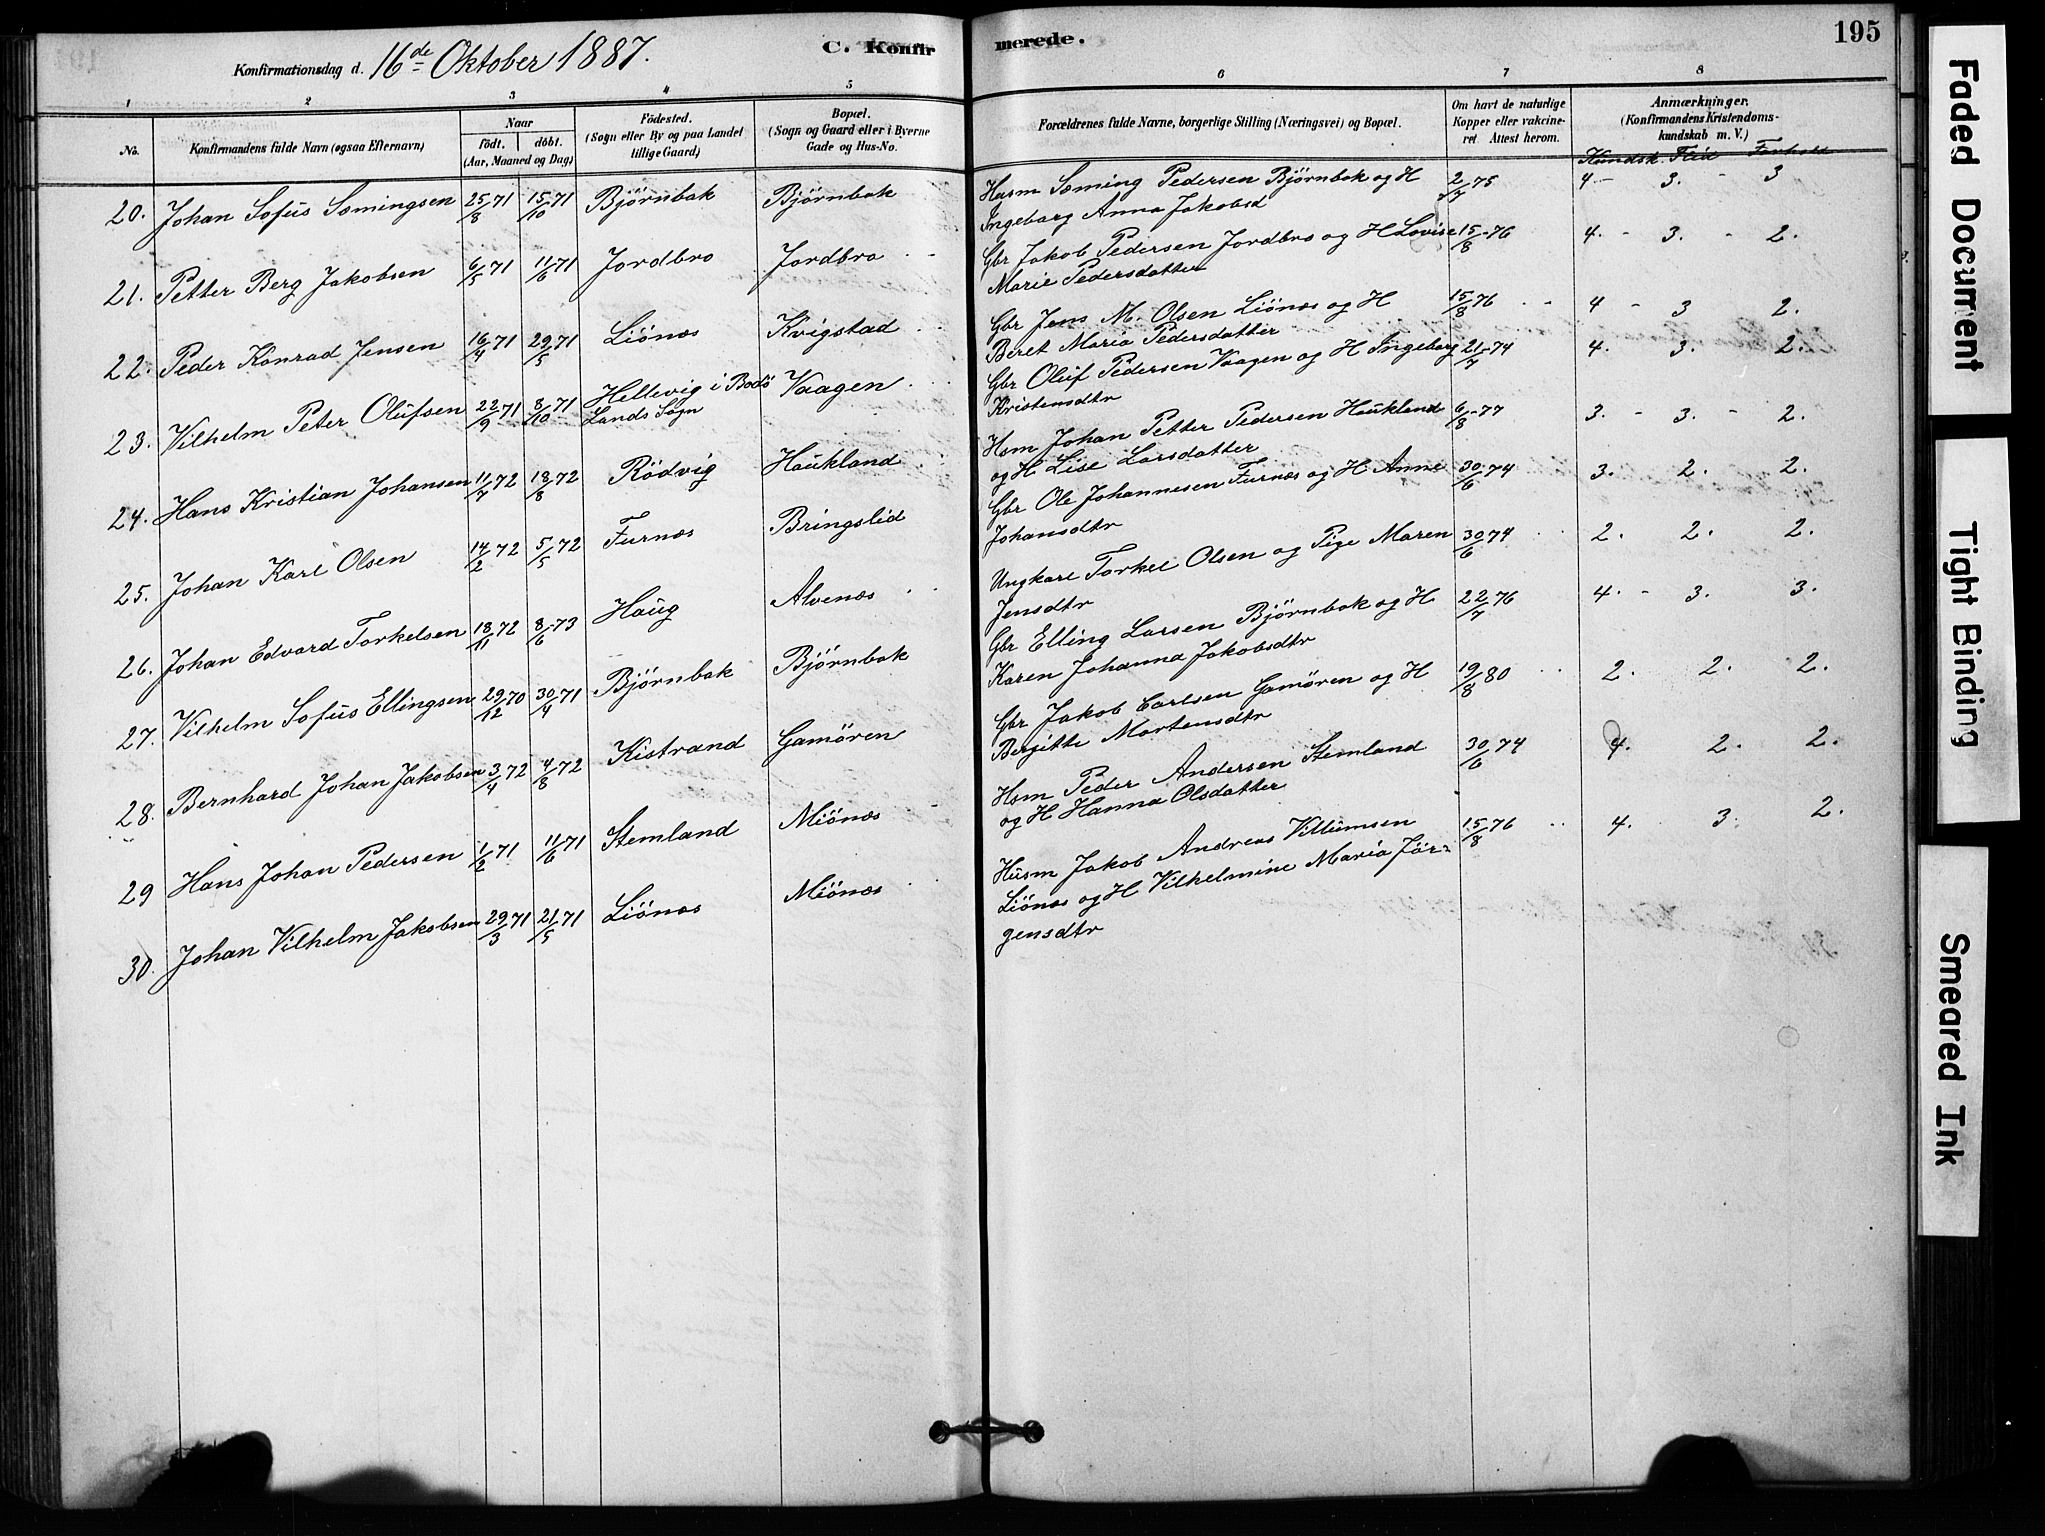 Konfirmationsdag d. 16de Oktober 1887.
C. Konfirmerede.
195
1 2 3 4 5 6 7 8
No.
Konfirmandens fulde Navn (ogsaa Efternavn)
Naar
födt. döbt.
(Aar, Maaned og Dag)
Födested.
(Sogn eller By og paa Landet
tillige Gaard)
Bopæl.
(Sogn og Gaard eller i Byerne
Gade og Hus-No.
Forældrenes fulde Navne, borgerlige Stilling (Næringsvei) og Bopæl.
Om havt de naturlige
Kopper eller vakcine-
ret Attest herom.
Anmærkninger.
(Konfirmandens Kristendoms-
kundskab m. V.)
Kundsk. Flid Forhold
20. Johan Sofus Sæmingsen 25/8 71 15/10 71 Björnbak Björnbak Husm Sæming Pedersen Björnbak og H 2/7 75 4 - 3. - 3
Ingebarg Anna Jakobsd
21. Petter Berg Jakobsen 6/5 71 11/6 71 Jordbro Jordbro Gbr Jakob Pedersen Jordbro og H Lovise 15/8 76 4. - 3. - 2.
Marie Pedersdatter
22. Peder Konrad Jensen 16/4 71 29/5 71 Liönæs Kvigstad Gbr Jens M. Olsen Liönæs og H 15/8 76 4 - 3 2.
Beret Maria Pedersdatter
23. Vilhelm Peter Olufsen 22/9 71 8/10 71 Hellevig i Bodö Vaagen Gbr Oluf Pedersen Vaagen og H Ingeborg 21/7 74 4. 3. 2.
Lands Sogn Kristensdtr
24. Hans Kristian Johansen 11/7 72 18/8 72 Rödvig Haukland Hsm Johan Petter Pedersen Haukland 6/8 77 3. - 3. - 2.
og H Lise Larsdatter
25. Johan Karl Olsen 14/2 72 5/5 72 Furnæs Bringslid Gbr Ole Johannesen Furnæs og H Anne 30/6 74 3. 2. 2.
Johansdtr
26. Johan Edvard Torkelsen 18/11 72 8/6 73 Haug Alvenæs Ungkarl Torkel Olsen og Pige Maren 30/6 74 2. 2. 2.
Jensdtr
27. Vilhelm Sofus Ellingsen 29/12 70 30/4 71 Björnbak Björnbak Gbr Elling Larsen Björnbak og H 22/7 76 4. - 3. 3.
Karen Johanna Jakobsdtr
28. Bernhard Johan Jakobsen 3/4 72 4/8 72 Kistrand Gamören Gbr Jakob Carlsen Gamören og H 19/8 80 2. 2. 2.
Bergitte Mortensdtr
29 Hans Johan Pedersen 1/2 71 11/6 71 Stemland Miönæs Hsm Peder Andersen Stemland 30/6 74 4. 2. 2.
og H Hanna Olsdatter
30. Johan Vilhelm Jakobsen 29/3 71 21/5 71 Liönæs Miönæs Husm Jakob Andreas Villumsen 15/8 76 4. 3. 2.
Liönæs og H Vilhelmine Maria Jör-
gensdtr
Faded Document
Tight Binding
Smeared Ink